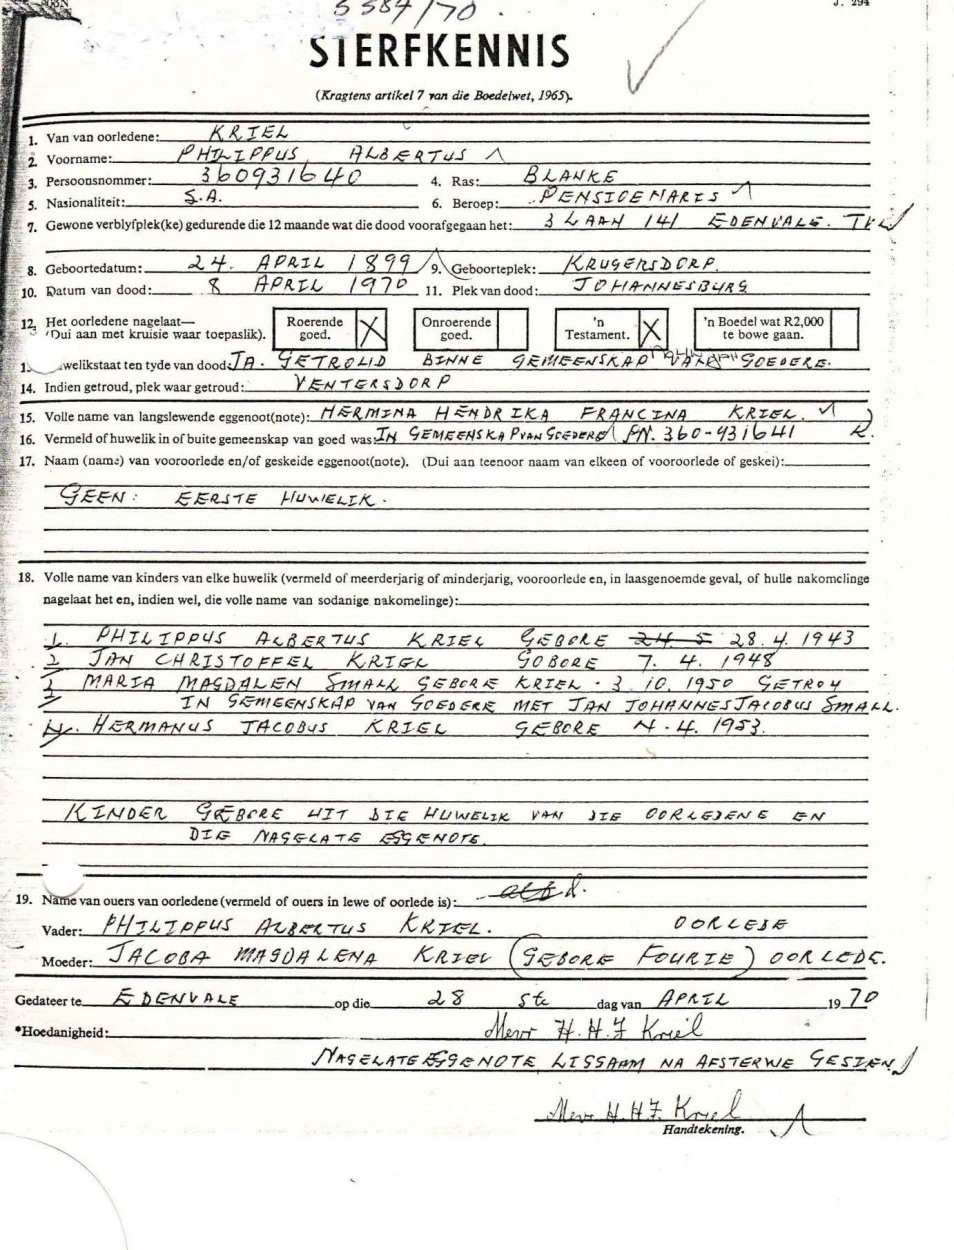 5584/70
J. 294
STERFKENNIS
(Kragtens artikel 7 van die Boedelwet, 1965).
1. Van van oorledene: KRIEL
2. Voorname: PHILIPPUS ALBERTUS
3. Persoonsnommer: 360931640 4. Ras: BLANKE
5. Nasionaliteit: S.A. 6. Beroep: PENSIOENARIS
7. Gewone verblyfplek(ke) gedurende die 12 maande wat die dood voorafgegaan het: 3 LAAN 141 EDENVALE. TVL
8. Geboortedatum: 24. APRIL 1899 9. Geboorteplek: KRUGERSDORP.
10. Datum van dood: 8 APRIL 1970 11. Plek van dood: JOHANNESBURG
12. Het oorledene nagelaat— Roerende goed. X Onroerende goed. 'n Testament. X 'n Boedel wat R2,000 te bowe gaan.
(Dui aan met kruisie waar toepaslik).
1 welikstaat ten tyde van dood: JA. GETROUD BINNE GEMEENSKAP VAN GOEDERE.
14. Indien getroud, plek waar getroud: VENTERSDORP
15. Volle name van langslewende eggenoot(note): HERMINA HENDRIKA FRANCINA KRIEL.
16. Vermeld of huwelik in of buite gemeenskap van goed was: IN GEMEENSKAP VAN GOEDERE PN. 360-931641
17. Naam (name) van vooroorlede en/of geskeide eggenoot(note). (Dui aan teenoor naam van elkeen of vooroorlede of geskei):
GEEN: EERSTE HUWELIK.
18. Volle name van kinders van elke huwelik (vermeld of meerderjarig of minderjarig, vooroorlede en, in laasgenoemde geval, of hulle nakomelinge
nagelaat het en, indien wel, die volle name van sodanige nakomelinge):
1. PHILIPPUS ALBERTUS KRIEL GEBORE 24. 5 28. 4. 1943
2 JAN CHRISTOFFEL KRIEL GOBORE 7. 4. 1948
3 MARIA MAGDALEN SMALL GEBORE KRIEL - 3. 10. 1950 GETROU
IN GEMEENSKAP VAN GOEDERE MET JAN JOHANNES JACOBUS SMALL.
4. HERMANUS JACOBUS KRIEL GEBORE 4. 1953.
KINDER GEBORE UIT DIE HUWELIK VAN DIE OORLEDENE EN
DIE NAGELATE EGGENOTE.
19. Name van ouers van oorledene (vermeld of ouers in lewe of oorlede is):
Vader: PHILIPPUS ALBERTUS KRIEL. OORLEDE
Moeder: JACOBA MAGDALENA KRIEL (GEBORE FOURIE) OORLEDE.
Gedateer te EDENVALE op die 28 ste dag van APRIL 1970
*Hoedanigheid: Mevr H. H. F Kriel
NAGELATE EGGENOTE LIGGAAM NA AFSTERWE GESIEN
Mevr H. H F. Kriel
Handtekening.